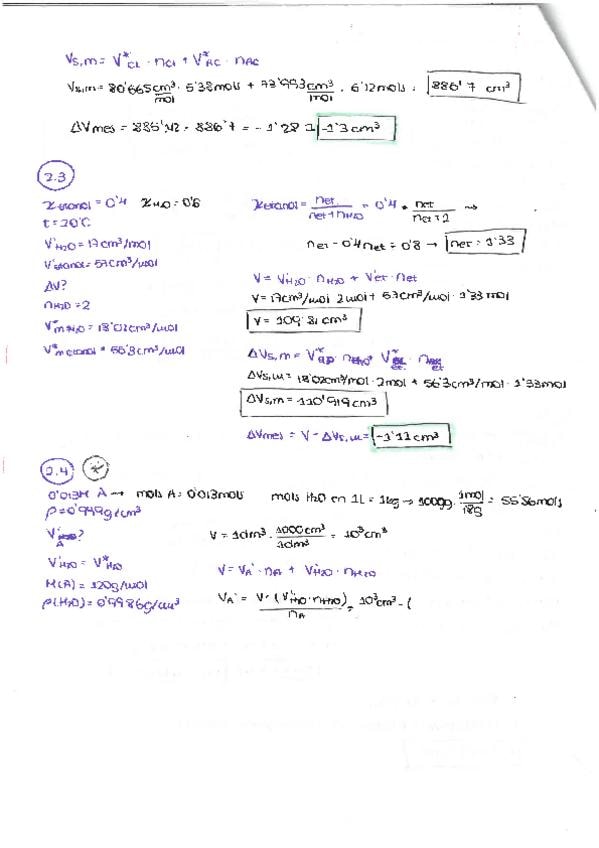 Vs,m = V*CL · nCl + V*AC · nAC
Vs,m = 80'665 cm³/mol · 5'38mols + 73'993 cm³/mol · 6'12mols = 886'7 cm³
ΔVmes = 885'42 - 886'7 = -1'28 -1'3 cm³
2.3
Xetanol = 0'4 XH2O = 0'6
t = 20°C
V'H2O = 17cm³/mol
V'etanol = 57cm³/mol
ΔV?
nH2O = 2
V*m H2O = 18'02cm³/mol
V*m etanol = 56'3cm³/mol
Xetanol = net/net+nH2O = 0'4 = net/net+2 →
net - 0'4net = 0'8 → net = 1'33
V = V'H2O · nH2O + V'et · net
V = 17cm³/mol · 2mol + 57cm³/mol · 1'33mol
V = 109'81cm³
ΔVs,m = V* · nH2O + V*et · net
ΔVs,m = 18'02cm³/mol · 2mol + 56'3cm³/mol · 1'33mol
ΔVs,m = 110'919cm³
ΔVmes = V - ΔVs,m = -1'11cm³
2.4 *
0'013M A → mols A = 0'013mols
ρ = 0'999g/cm³
V'A?
V'H2O = V*H2O
M(A) = 120g/mol
ρ(H2O) = 0'9986g/cm³
mols H2O en 1L = 1kg → 1000g · 1mol/18g = 55'56mols
V = 1dm³ · 1000cm³/1dm³ = 10³cm³
V = VA' · nA + V'H2O · nH2O
VA' = V - (V'H2O · nH2O)/nA = 10³cm³ - (